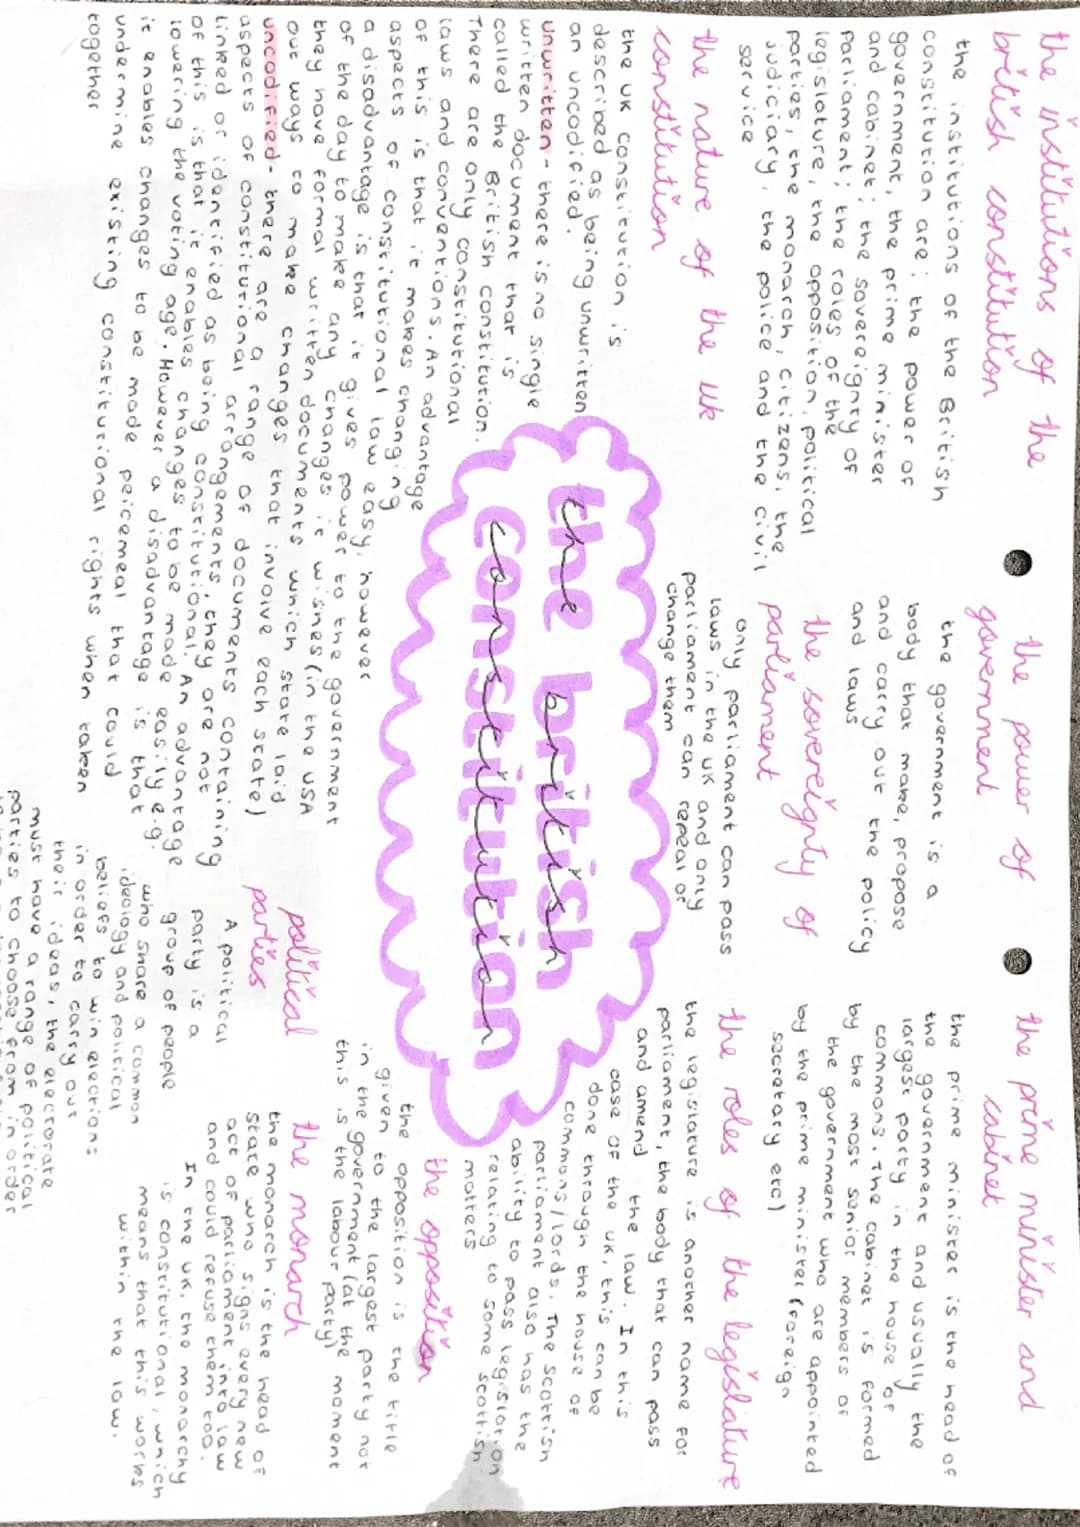 the institutions of the
british constitution
the institutions of the British
constitution are: the power of
government, the prime minister
and cabinet; the sovereignty of
parliament; the roles of the
legislature, the opposition, political
parties, the monarch, citizens, the
judiciary, the police and the civil
service
the nature of the uk
constitution
the UK constitution is
described as being unwritten
an uncodified.
unwritten - there is no single
written document that is
called the British constitution.
There are only constitutional
laws and conventions. An advantage
of this is that it makes changing
aspects of constitutional law easy, however
a disadvantage is that it gives power to the government
of the day to make any changes it wishes (in the USA
they have formal written documents which state laid
out ways to make changes that involve each state)
uncodified - there are a range of documents containing
aspects of constitutional arrangements, they are not
linked or identified as being constitutional. An advantage
of this is that it enables changes to be made easily e.g.
lowering the voting age. However a disadvantage is that
it enables changes to be made peicemeal that could
undermine existing constitutional rights when taken
together
the power of
government
the government is a
body that make, propose
and carry out the policy
and laws
the sovereignty of
parliament
only parliament can pass
laws in the UK and only
parliament can repeal or
change them
the british
constitution
political
parties
A political
party is a
group of people
who share a common
ideology and political
beliefs to win elections
in order to carry out
their ideas, the electorate
must have a range of political
parties to choose from in order
the prime minister and
cabinet
the prime minister is the head of
the government and usually the
largest party in the house of
commons. The cabinet is formed
by the most senior members of
the government who are appointed
by the prime minister (foreign
secretary etc)
the roles of the legislature
the legislature is another name for
parliament, the body that can pass
and amend the law. In this
case of the UK, this can be
done through the house of
commons/lords. The scottish
parliament also has the
ability to pass legislation
relating to some scottish
matters
the opposition
the opposition is the title
given to the largest party not
in the government (at the moment
this is the labour party)
the monarch
the monarch is the head of
state who signs every new
act of parliament into law
and could refuse them too.
In the UK, the monarchy
is constitutional, which
means that this works
within the law.